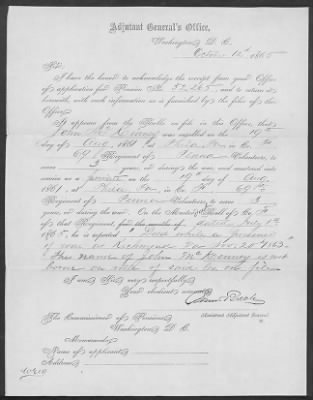 Adjutant General's Office,
Washington, D. C.
October 12th, 1865
Sir:
I have the honor to acknowledge the receipt from your Office
of application for Pension No. 52,265, and to return it
herewith, with such information as is furnished by the files of this
Office.
It appears from the Rolls on file in this Office, that
John McKinney was enrolled on the 19th
day of Aug, 1861, at Phila Pa in Co. F
69th Regiment of Penna Volunteers, to
serve 3 years, or during the war, and mustered into
service as a private on the 19th day of Aug
1861, at Phila Pa, in Co. F 69th
Regiment of Penna Volunteers, to serve 3
years, or during the war. On the Muster Roll of Co. F
of that Regiment, for the months of dated July 1st
1865, he is reported "Died while a prisoner
of war at Richmond Va Nov. 20th 1863."
The name of John McKenny is not
borne on rolls of said Co on file
I am, Sir, very respectfully,
Your obedient servant,
Assistant Adjutant General
The Commissioner of Pensions
Washington, D. C.
Memoranda:
Name of applicant
Address